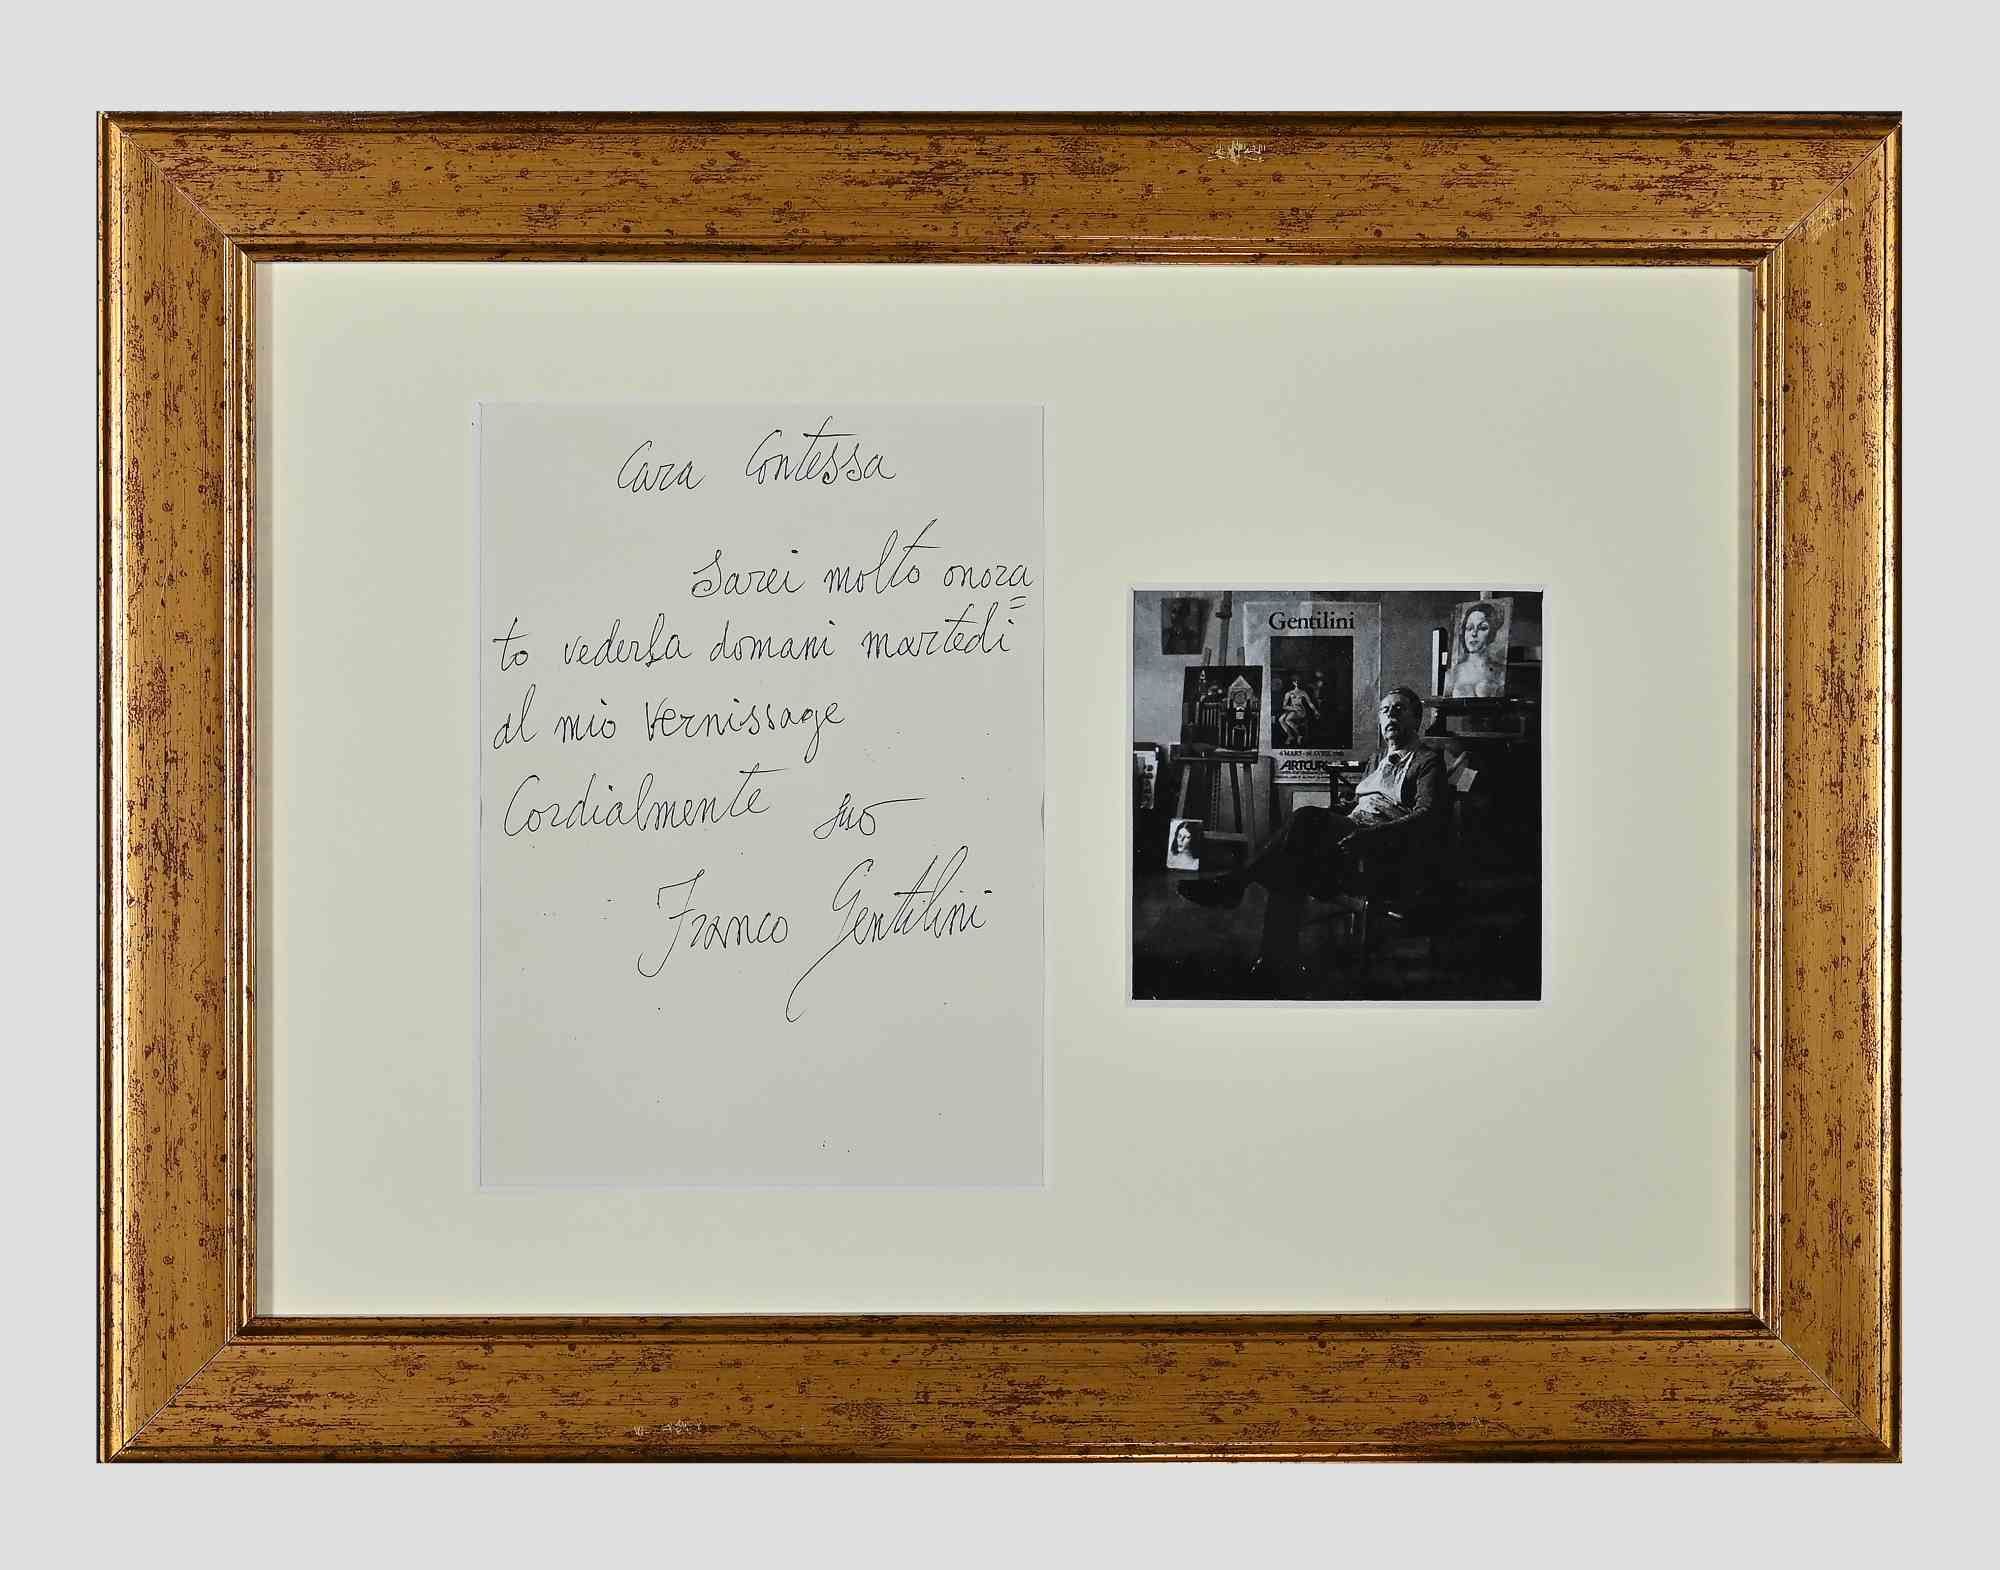 Cara Contessa
Sarei molto onora=
to vederla domani martedì
al mio vernissage
Cordialmente suo
Franco Gentilini
Gentilini